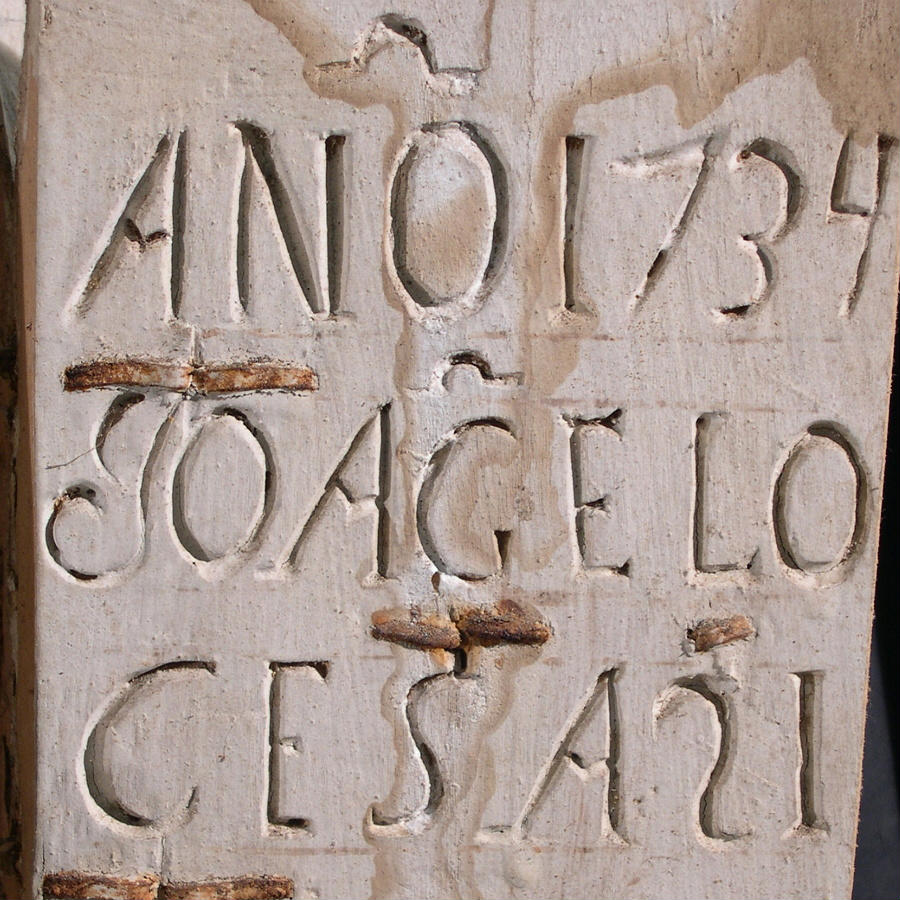 ANÕ 1734
JOAG̃ELO
CESARI